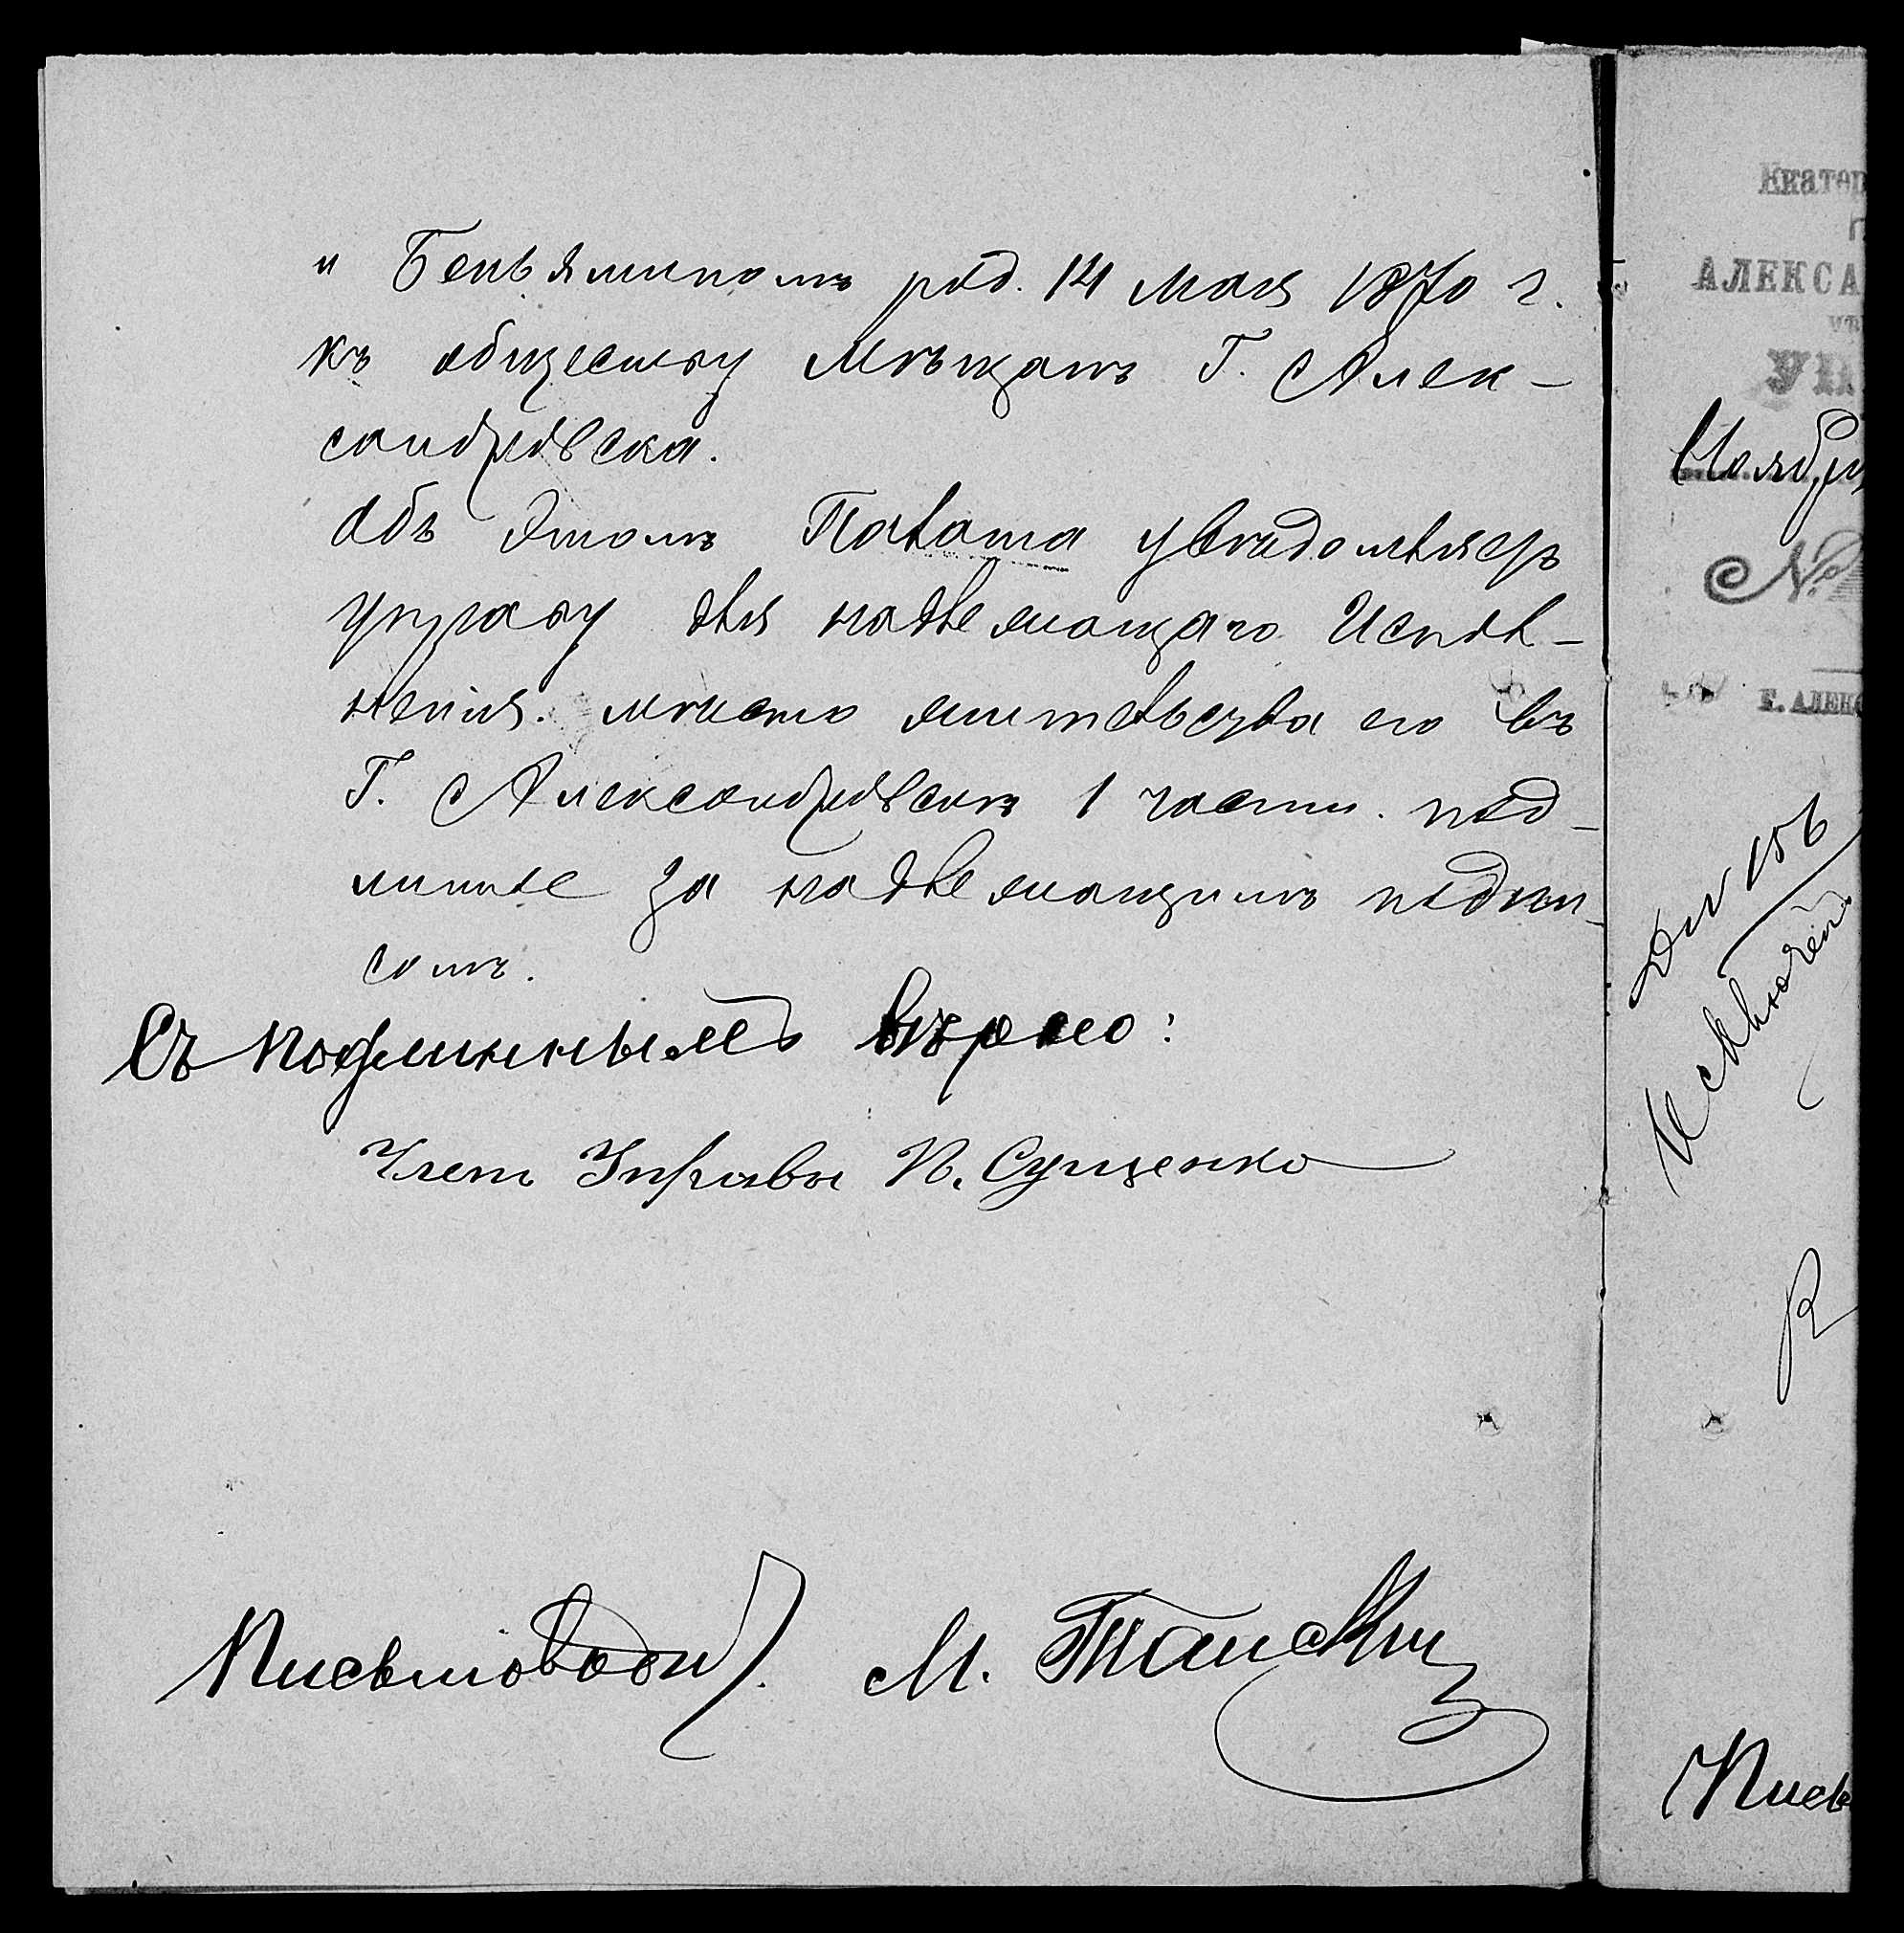 и Беньяминомъ род. 14 Мая 1870 г.
къ обществу Мѣщанъ Г. Алек-
сандровска.
Объ этомъ Палата увѣдомляетъ
управу для надлежащаго Испол-
ненія. мѣсто жительства его въ
Г. Александровскѣ 1 части. под-
линное за надлежащимъ подпи-
сомъ.
Съ подлиннымъ вѣрно:
Членъ Управы П. Сущенко
Письмоводит. М.
Екатер
АЛЕКСА
УП
Ноября
№
Г. АЛЕКС
Исключен
Письм